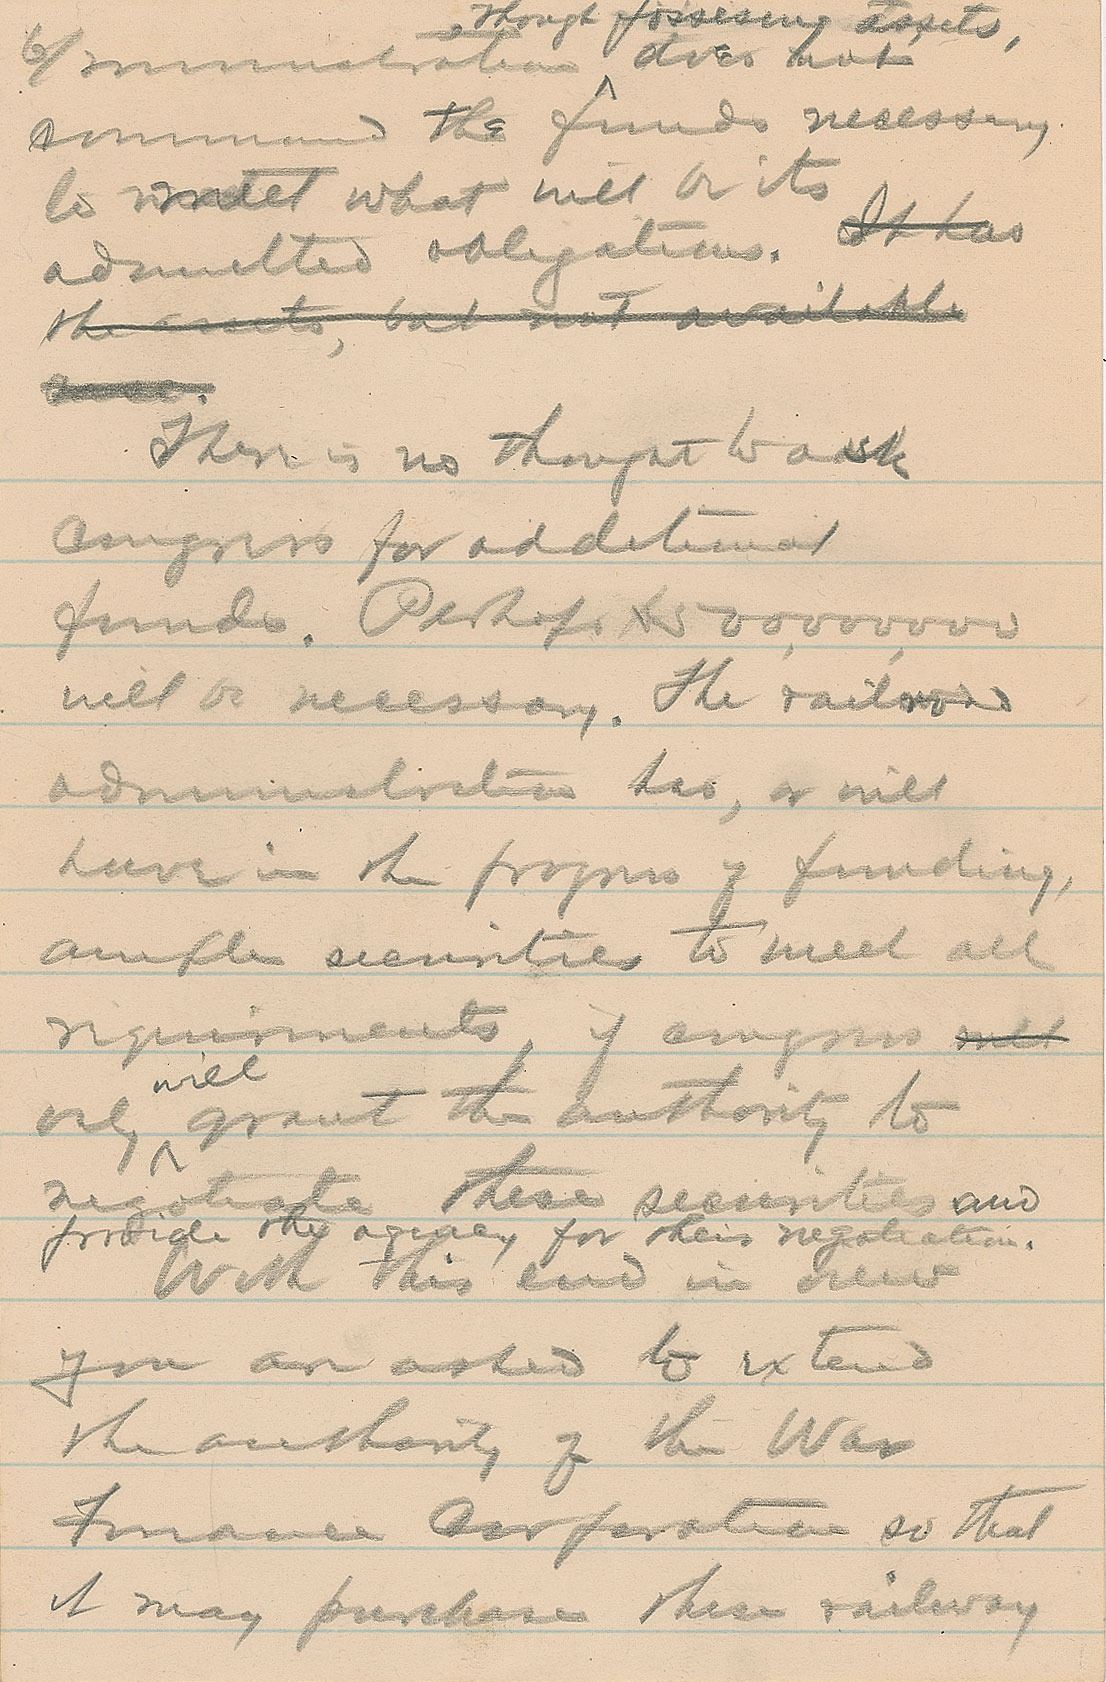 though possessing assets,
6/ ministration ^ does not
command the funds necessary
to meet what will be its
admitted obligations. It has
the assets, but not available
There is no thought to ask
Congress for additional
funds. Perhaps $500,000,000
will be necessary. The railroad
administration has, or will
have in the progress of funding,
ample securities to meet all
requirements, if congress will
will
only ^ grant the authority to
negotiate these securities and
provide the agency for their negotiation.
With this end in view
you are asked to extend
the authority of the War
Finance Corporation so that
it may purchase these railway